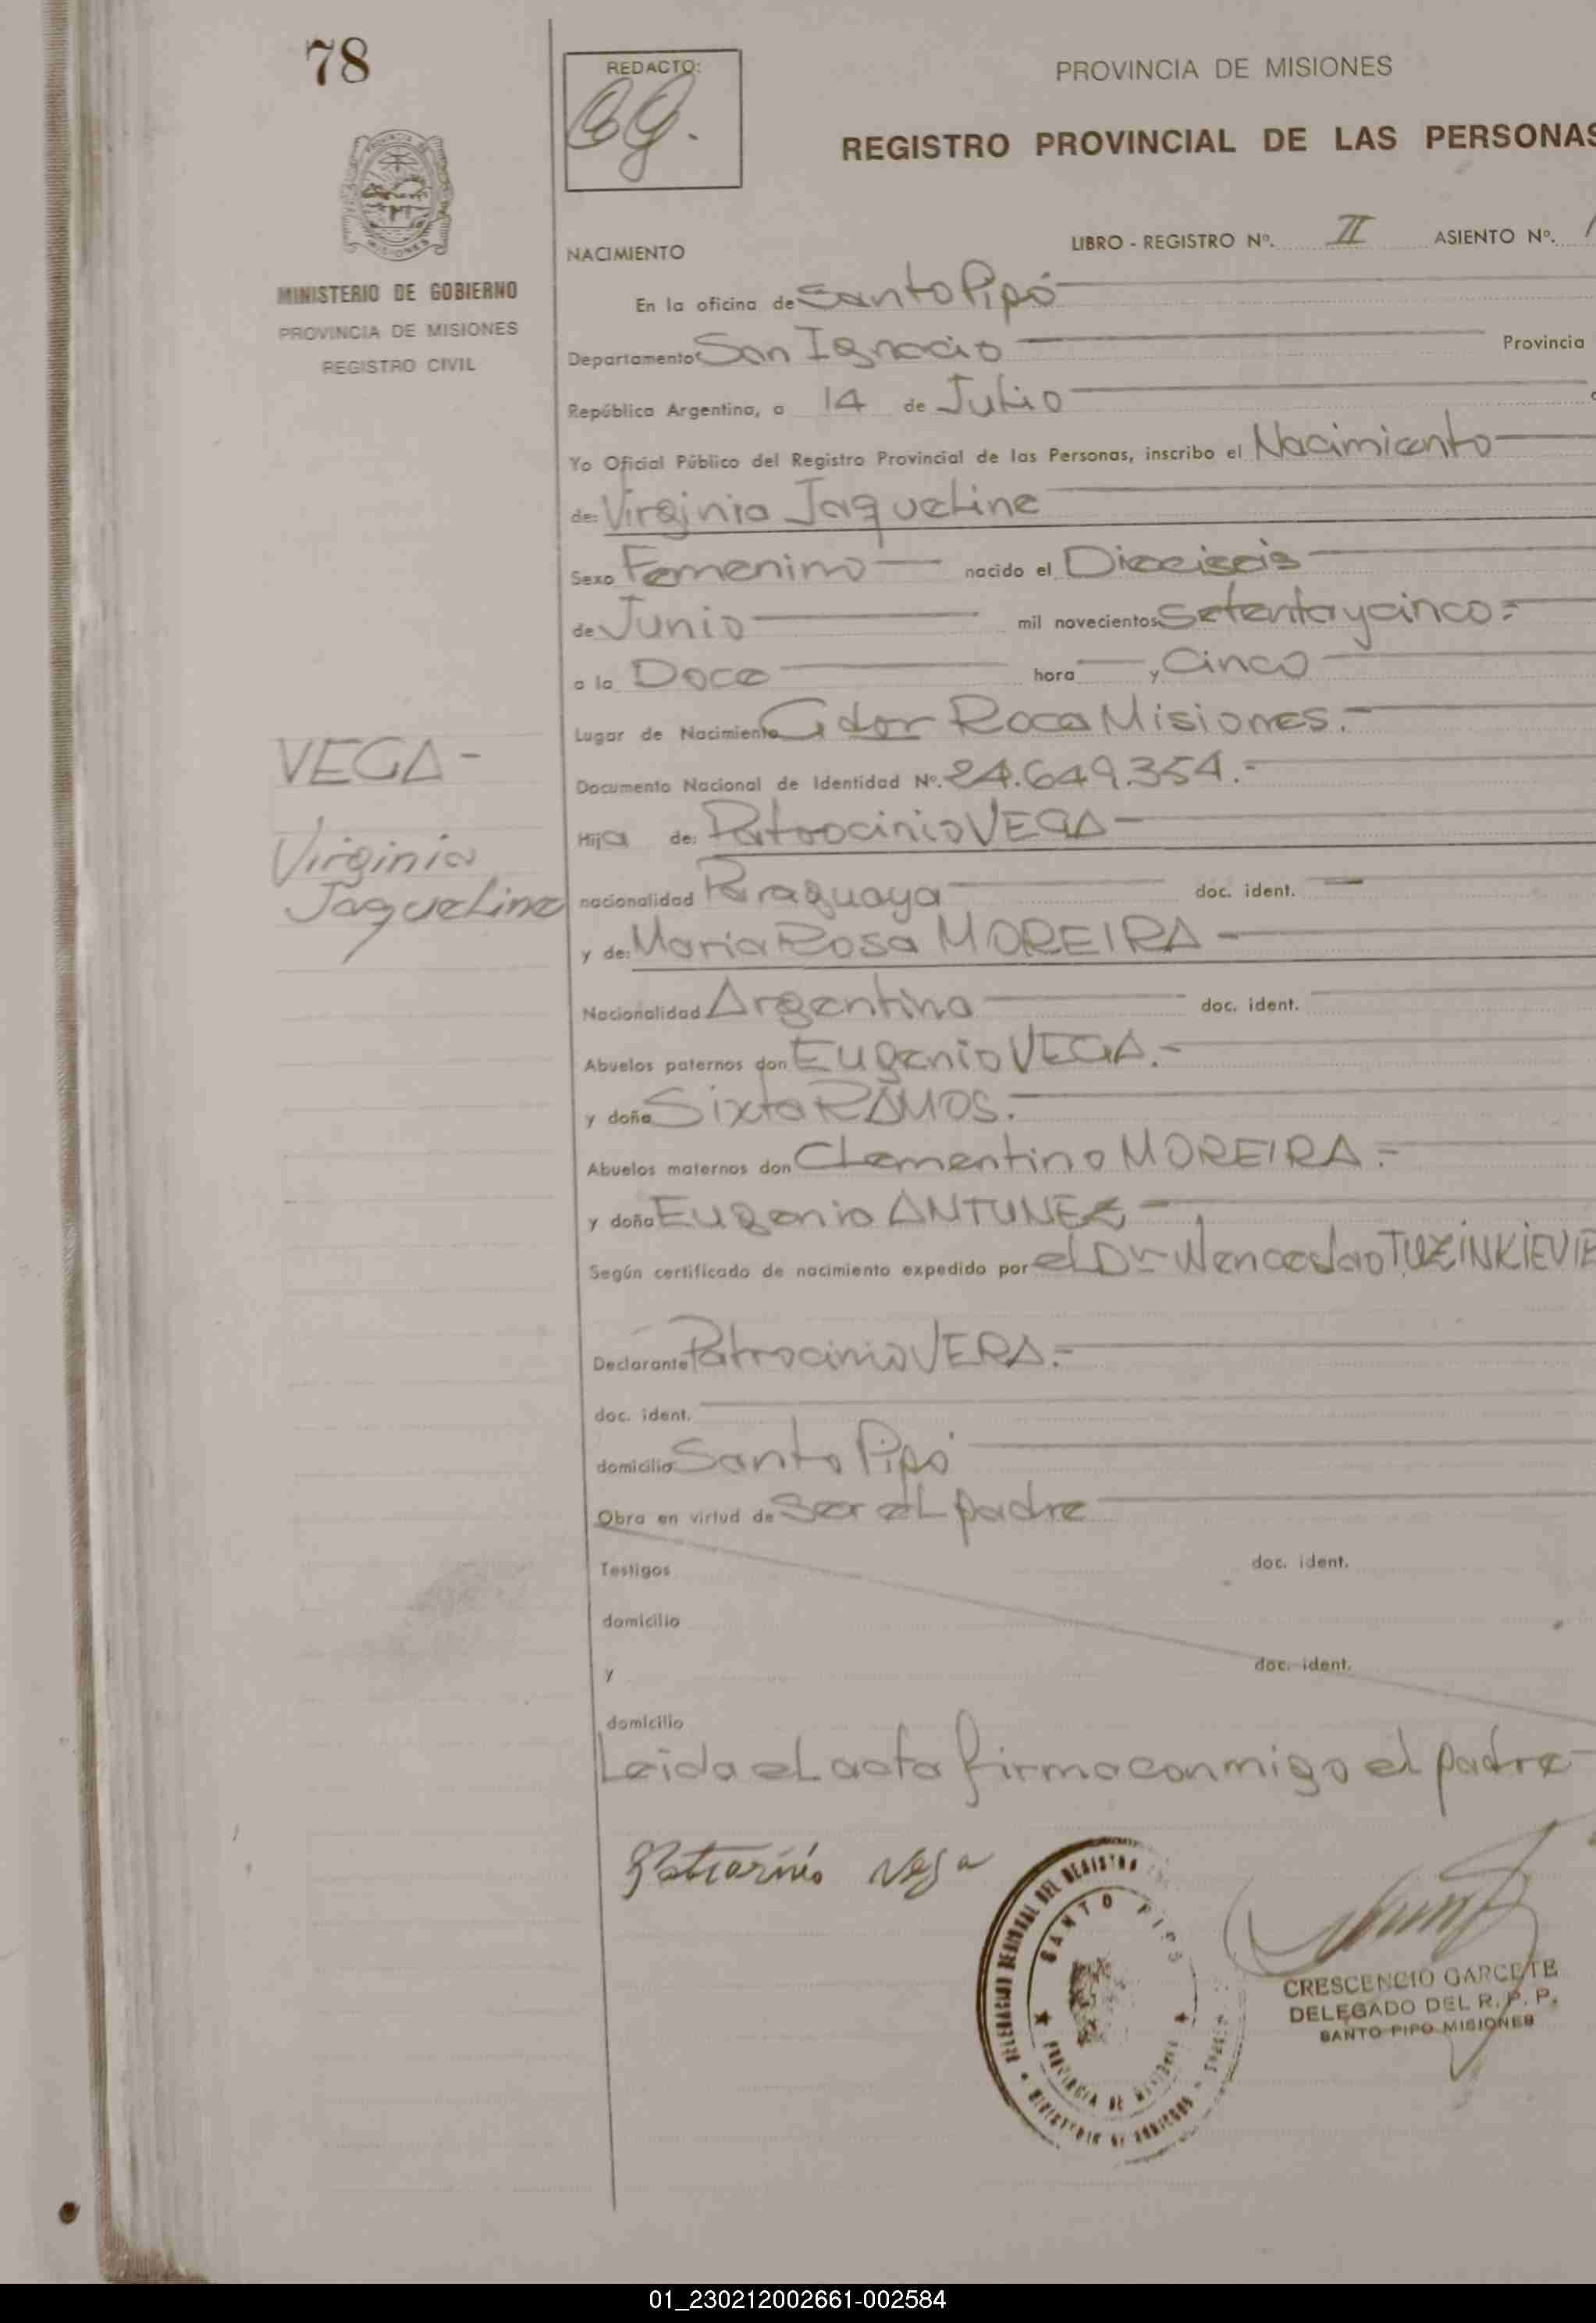 78
REDACTO:
PROVINCIA DE MISIONES
REGISTRO PROVINCIAL DE LAS PERSONAS
LIBRO - REGISTRO Nº. II ASIENTO Nº.
NACIMIENTO
MINISTERIO DE GOBIERNO
PROVINCIA DE MISIONES
REGISTRO CIVIL
En la oficina de Santo Pipó
Departamento San Ignacio Provincia
República Argentina, a 14 de Julio
Yo Oficial Público del Registro Provincial de las Personas, inscribo el Nacimiento
de: Virginia Jaqueline
Sexo Femenino nacido el Dieciseis
de Junio mil novecientos Setenta y cinco.-
a la Doce hora y Cinco
Lugar de Nacimiento Gdor Roca Misiones.-
VEGA -
Documento Nacional de Identidad Nº. 24.649.354.-
Hija de: Patrocinio VEGA -
Virginia
Jaqueline
nacionalidad Paraguaya doc. ident. -
y de: Maria Rosa MOREIRA -
Nacionalidad Argentina doc. ident.
Abuelos paternos don Eugenio VEGA.-
y doña Sixta RAMOS.
Abuelos maternos don Clementino MOREIRA.-
y doña Eugenia ANTUNEZ -
Según certificado de nacimiento expedido por el Dr Wenceslao TUZINKIEVIE
Declarante Patrocinio VERA.-
doc. ident.
domicilio Santo Pipó
Obra en virtud de Ser el padre
Testigos doc. ident.
domicilio
y doc. ident.
domicilio
Leida el acta firma conmigo el padre
Vega
SANTO PIPO
PROVINCIA DE MISIONES
MINISTERIO DE GOBIERNO
CRESCENCIO GARCETE
DELEGADO DEL R. P. P.
SANTO PIPO MISIONES
01_230212002661-002584